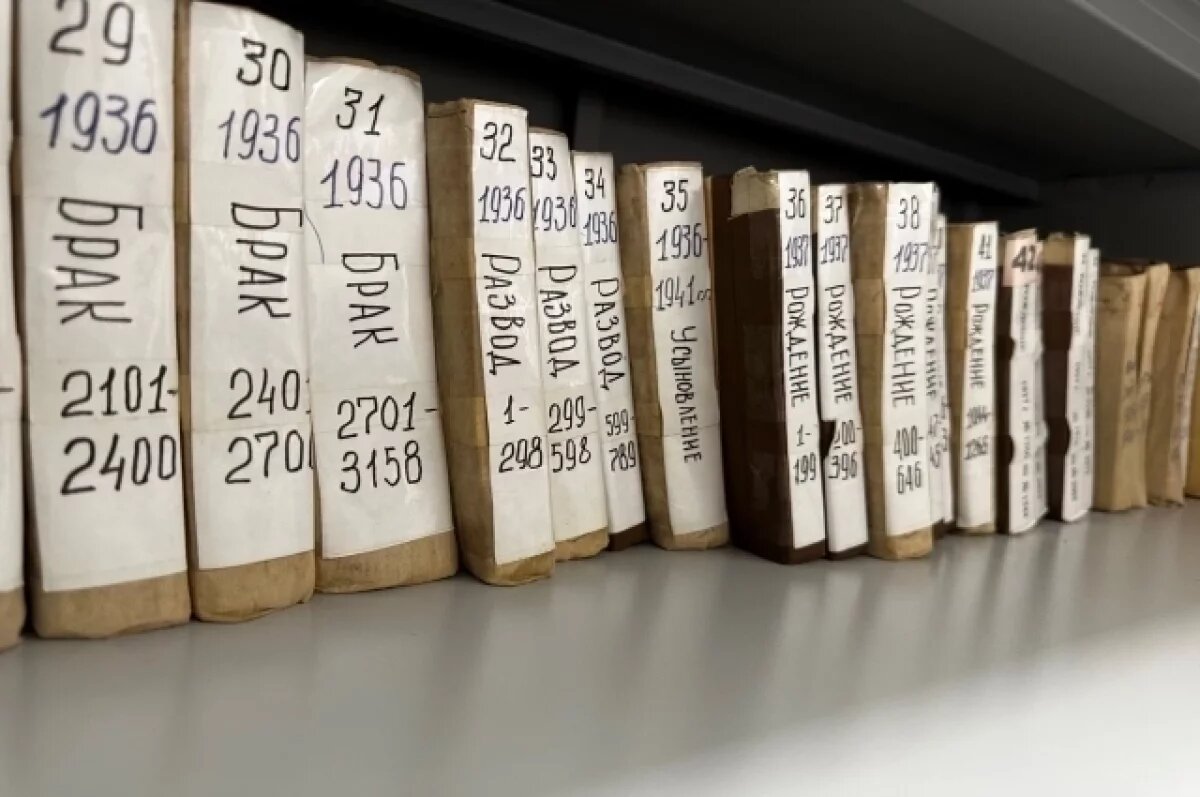 29
1936
БРАК
2101-
2400
30
1936
БРАК
2401
270
31
1936
БРАК
2701-
3158
32
1936
РАЗВОД
1-
298
33
1936
РАЗВОД
299-
598
34
1936
РАЗВОД
599-
789
35
1936-
1941
УСЫНОВЛЕНИЕ
36
1937
РОЖДЕНИЕ
1-
199
37
1937
РОЖДЕНИЕ
396
38
1937
РОЖДЕНИЕ
400-
646
41
1937
РОЖДЕНИЕ
42